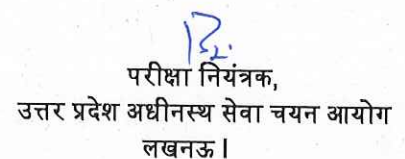 परीक्षा नियंत्रक,
उत्तर प्रदेश अधीनस्थ सेवा चयन आयोग
लखनऊ।